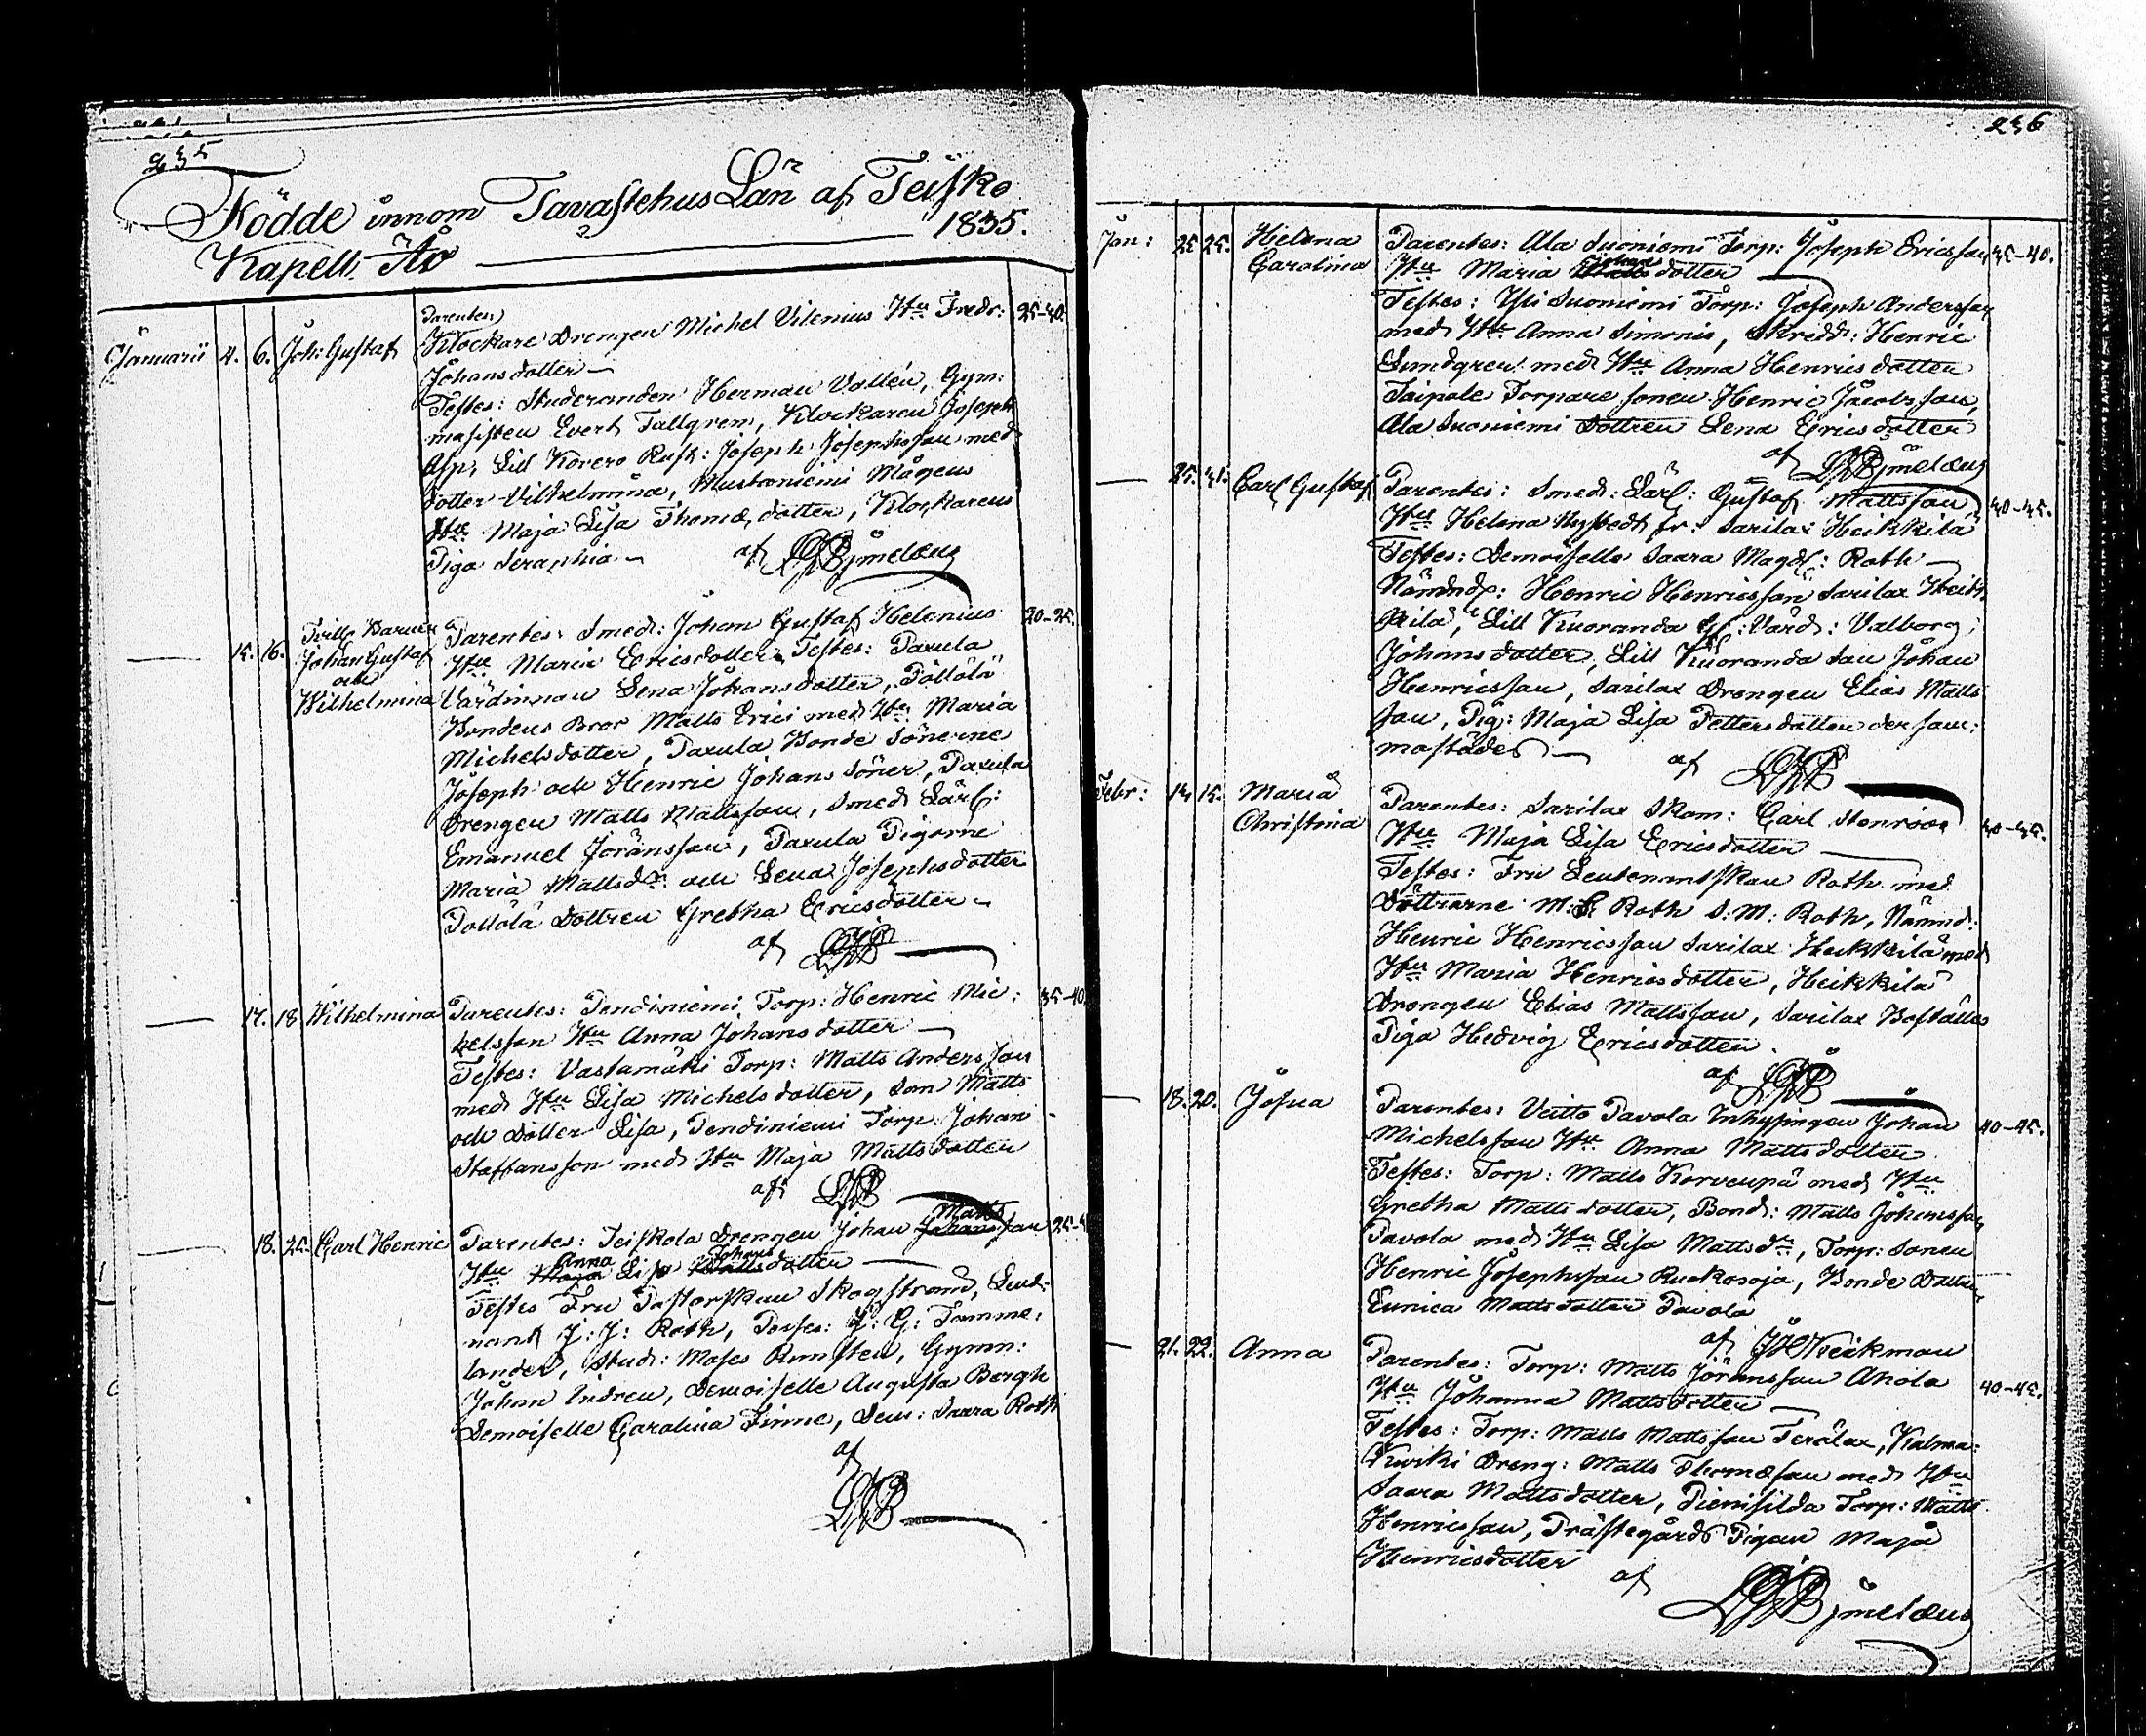 235
Födde innom Tavastehus Län af Teisko
Kapell År 1835.
Januarii 4. 6. Joh: Gustaf
Parentes
Klockare Drengen Michel Vilenius Hu Fredr: 25-30.
Johansdotter
Testes: Studeranden Herman Vallén, Gym:
masisten Evert Tallgren, Klockaren Joseph
Asp, Lill Korero Rust: Joseph Josephsson med
dotter Vilhelmina, Mustaniemi Mågens
Hu Maja Lisa Thomædotter, Klockarens
Piga Seraphia af
15. 16. Tvill Barnen
Johan Gustaf
och
Wilhelmina
Parentes: Smed: Johan Gustaf Helenius 20-25.
Hu Maria Ericsdotter Testes: Paxula
Värdinnan Lena Johansdotter, Pöllölä
Bondens Bror Matts Erici med Hu Maria
Michelsdotter, Paxula Bonde Sönerne
Joseph och Henric Johans Söner, Paxula
Drengen Matts Mattsson, Smed Lärl:
Emanuel Jöransson, Paxula Pigorne
Maria Mattsdr och Lena Josephsdotter
Pöllölä Dottren Gretha Ericsdotter
af
17. 18 Wilhelmina
Parentes: Pendiniemi Torp: Henric Mic: 35-40
kelsson Hu Anna Johansdotter
Testes: Vastamäki Torp: Matts Andersson
med Hu Lisa Michelsdotter, Son Matts
och Dotter Lisa, Pendiniemi Torp: Johan
Staffansson med Hu Maja Mattsdotter
af
18. 25. Carl Henric
Parentes: Teiskola Drengen Johan Johansson Matts 25-
Hu Maja Anna Lisa Matts Johans dotter
Testes Fru Pastorskan Skogström, Leut:
nant J: J: Roth, Possess: J: G: Tamme:
lander, Stud: Moses Runsten, Gymn:
Johan Indren, Demoiselle Augusta Bergh
Demoiselle Carolina Finne, Dem: Saara Roth
af
236
Jan: 25 25. Helena
Carolina
Parentes: Ala Suoniemi Torp: Joseph Ericsson 35-40.
Hu Maria Matts Johans dotter
Testes: Yli Suoniemi Torp: Joseph Andersson
med Hu Anna Simonis, Skredd: Henric
Sundgren med Hu Anna Henricsdotter
Taipale Torpare sonen Henric Jacobsson,
Ala Suoniemi Dottren Lena Ericsdotter
af
25. 31. Carl Gustaf
Parentes: Smed: Lärl: Gustaf Mattsson 40-45.
Hu Helena Nystedt fr: Sarilax Heikkilä
Testes: Demoiselle Saara Magd: Roth
Nämndm: Henric Henricsson Sarilax Heik:
kilä, Lill Kuoranda Gl: Värd: Valborg
Johansdotter, Lill Kuoranda Son Johan
Henricsson, Sarilax Drengen Elias Matts
son, Pig: Maja Lisa Pettersdotter der sam:
mastädes
af
Febr: 14 15. Maria
Christina
Parentes: Sarilax Skom: Carl Stenroos 40-45.
Hu Maja Lisa Ericsdotter
Testes: Fru Leutenantskan Roth med
Döttrarne M: C: Roth S: M: Roth, Nämnd:
Henric Henricsson Sarilax Heikkilä med
Hu Maria Henricsdotter, Heikkilä
Drengen Elias Mattsson, Sarilax Boställes
Piga Hedvig Ericsdotter.
af
18. 20. Josua
Parentes: Veitto Pavola Inhysingen Johan 40-45.
Michelsson Hu Anna Mattsdotter
Testes: Torp: Matts Korvenpä med Hu
Gretha Mattsdotter, Bond: Matts Johansson
Pavola med Hu Lisa Mattsdr, Torp: Sonen
Henric Josephsson Ruokosoja, Bonde Dottren
Eunica Mattsdotter Pavola
af
21. 22. Anna
Parentes: Torp: Matts Jöransson Ahola 40-45.
Hu Johanna Mattsdotter
Testes: Torp: Matts Mattsson Terälax, Kalma:
Kurki Dreng: Matts Thomæson med Hu
Saara Mattsdotter, Pienisilda Torp: Matts
Henricsson, Prästegårds Pigan Maja
Henricsdotter
af